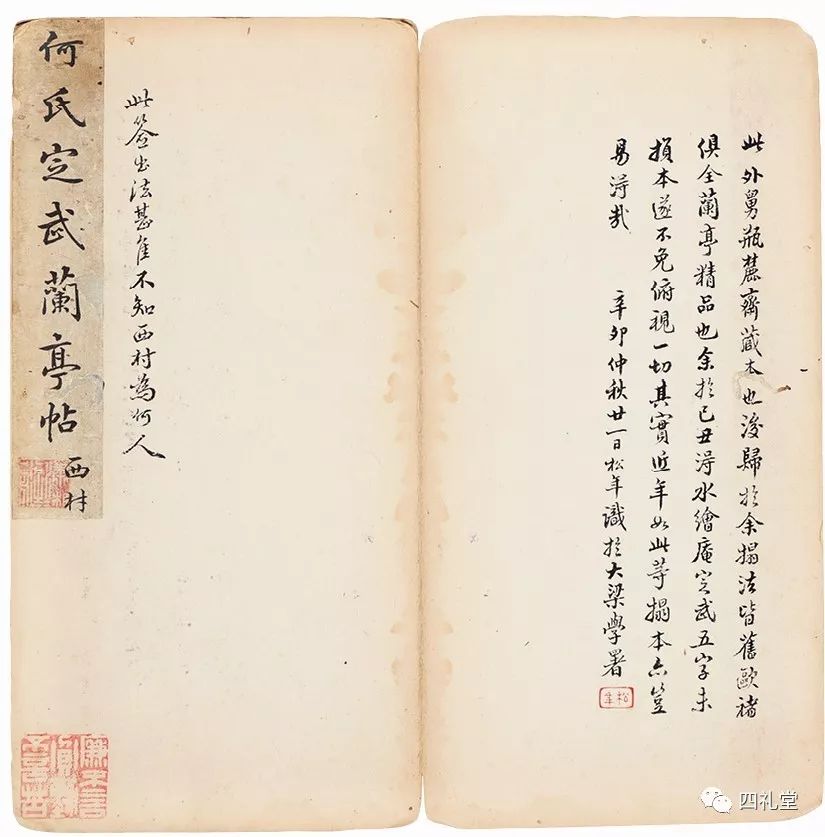 此外舅瓶麓齋藏本也後歸於余搨法皆舊歐褚
俱全蘭亭精品也余於己丑得水繪庵定武五字未
損本遂不免俯視一切其實近年如此等搨本亦豈
易得哉　辛卯仲秋廿一日松年識於大梁學署
松年
此簽書法甚佳不知西村為何人
何氏定武蘭亭帖
西村
四礼堂